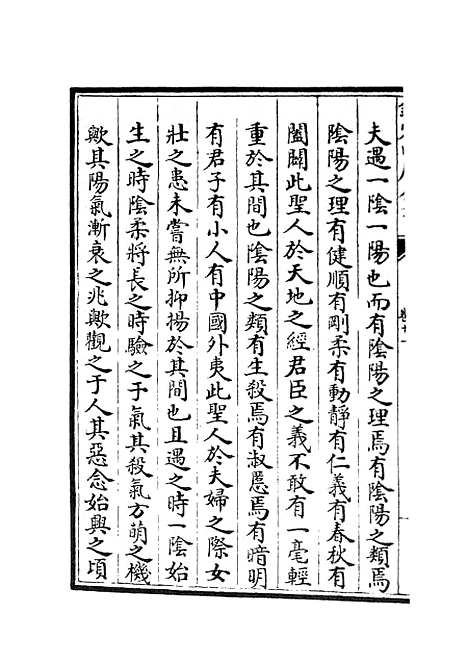 夫遇一陰一陽也而有陰陽之理焉有陰陽之類焉
陰陽之理有健順有剛柔有動靜有仁義有春秋有
闔闢此聖人於天地之經君臣之義不敢有一毫輕
重於其間也陰陽之類有生殺焉有淑慝焉有暗明
有君子有小人有中國外夷此聖人於夫婦之際女
壯之患未嘗無所抑揚於其間也且遇之時一陰始
生之時陰柔將長之時驗之于氣其殺氣方萌之機
歟其陽氣漸衰之兆歟觀之于人其惡念始興之頃